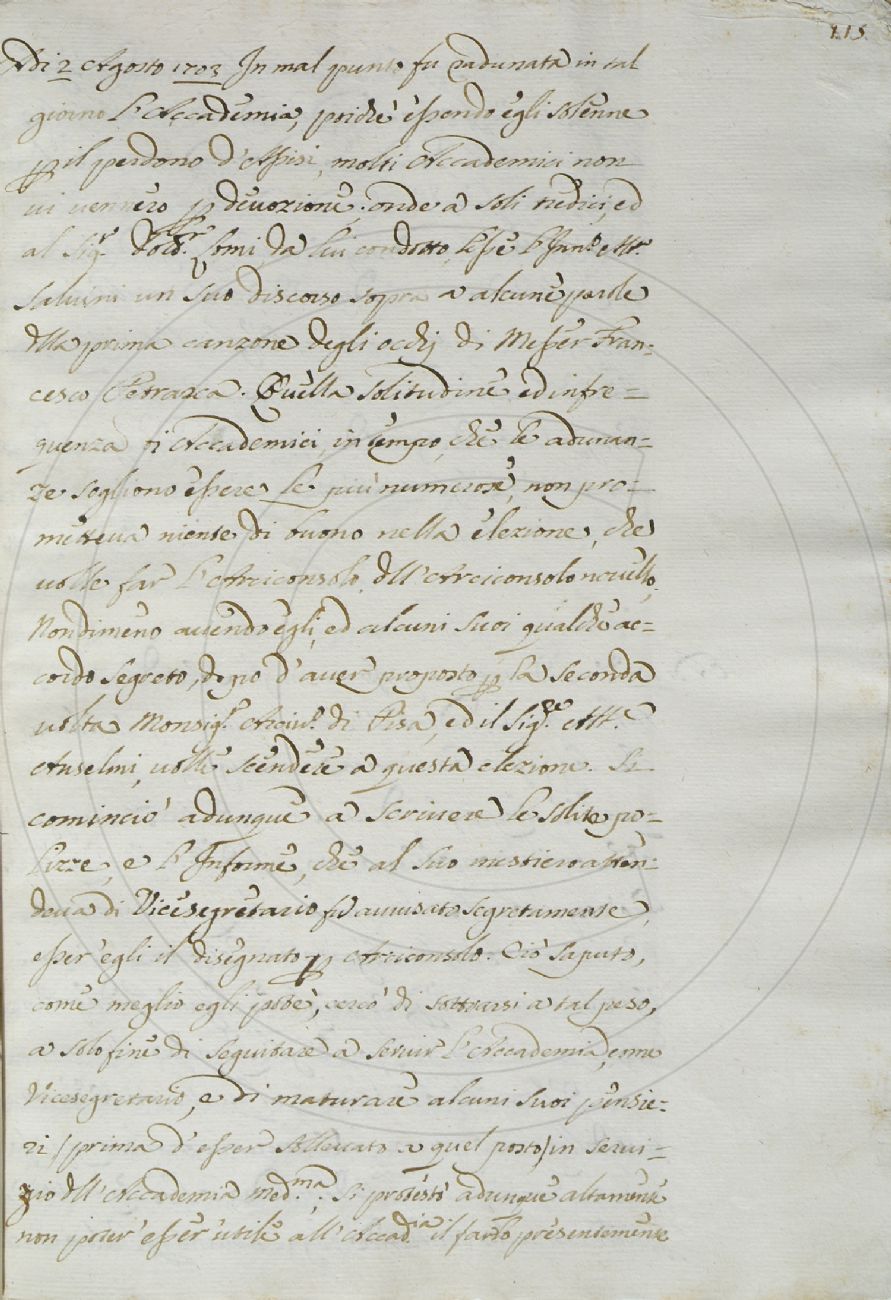 115.
Adi 2 Agosto 1703 In mal punto fu radunata in tal
giorno l'Accademia, poichè essendo egli solenne
p il perdono d'Assisi, molti Accademici non
vi vennero p devozione. onde a soli tredici, ed
al Sig.r Dott.r Lomi, da lui condotto, lesse l'
Salvini un suo discorso sopra a alcune parole
dlla prima canzone degli occhj di Messer Fran=
cesco Petrarca. Quella solitudine ed infre=
quenza di Accademici, in tempo, che le adunan=
ze sogliono essere le più numerose, non pro=
metteva niente di buono nella elezione, che
volle far l'Arciconsolo dll'Arciconsolo novello,
Nondimeno avendo egli, ed alcuni suoi qualche ac=
cordo segreto, dopo d'aver proposto p la seconda
volta Monsig.r Arciv.o di Pisa, ed il Sig.re
Anselmi, volle scendere a questa elezione. Si
cominciò adunque a scrivere le solite po=
lizze, e l'Informe, che al suo mestiero atten=
deva di Vicesegretario fu avvisato segretamente,
esser egli il disegnato p Arciconsolo. Ciò saputo,
come meglio egli potè, cercò di sottrarsi a tal peso,
a solo fine di seguitare a servir l'Accademia, come
Vicesegretario, e di maturare alcuni suoi pensie=
ri / prima d'esser sollevato a quel posto / in servi=
zio dll'Accademia med.ma. Si protestò adunque altamente
non poter esser utile all'Accad.ia il farlo presentemente